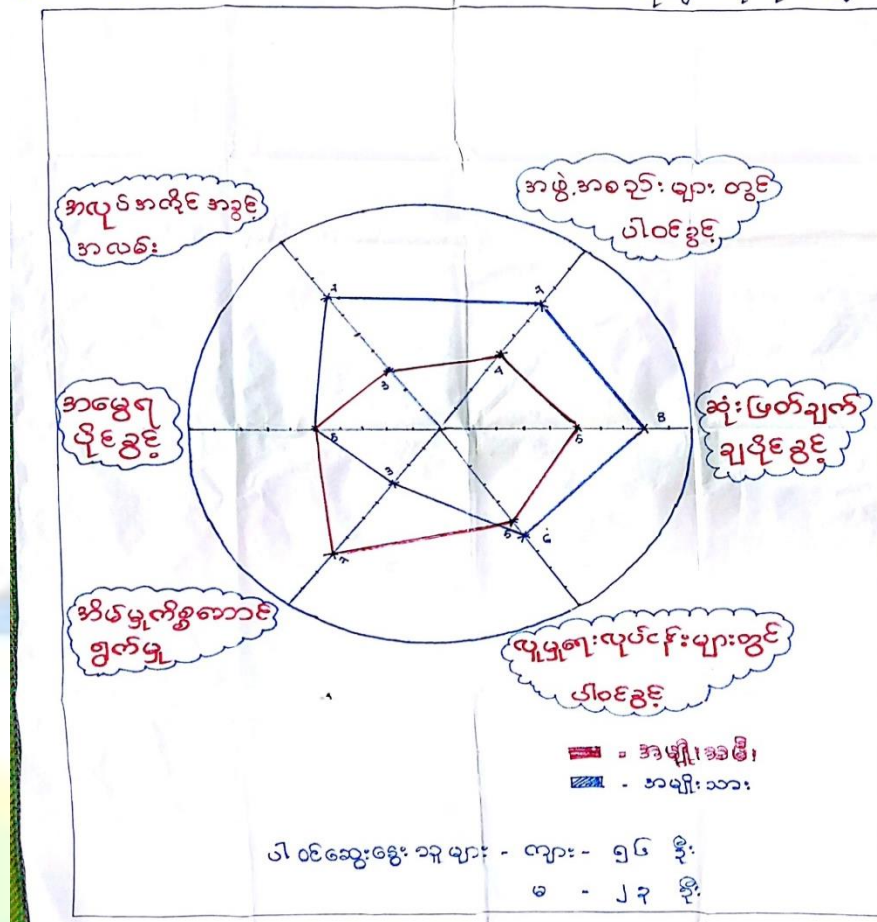 အလုပ်အကိုင် အခွင့်
အလမ်း
အဖွဲ့အစည်း များ တွင်
ပါဝင်ခွင့်
အမွေရ
ပိုင်ခွင့်
ဆုံးဖြတ်ချက်
ချပိုင်ခွင့်
အိမ်မှုကိစ္စဆောင်
ရွက်မှု
လူမှုရေးလုပ်ငန်းများတွင်
ပါဝင်ခွင့်
- အမျိုးသမီး
- အမျိုးသား
ပါဝင်ဆွေးနွေးသူများ - ကျား - ၅၆ ဦး
မ - ၂၃ ဦး